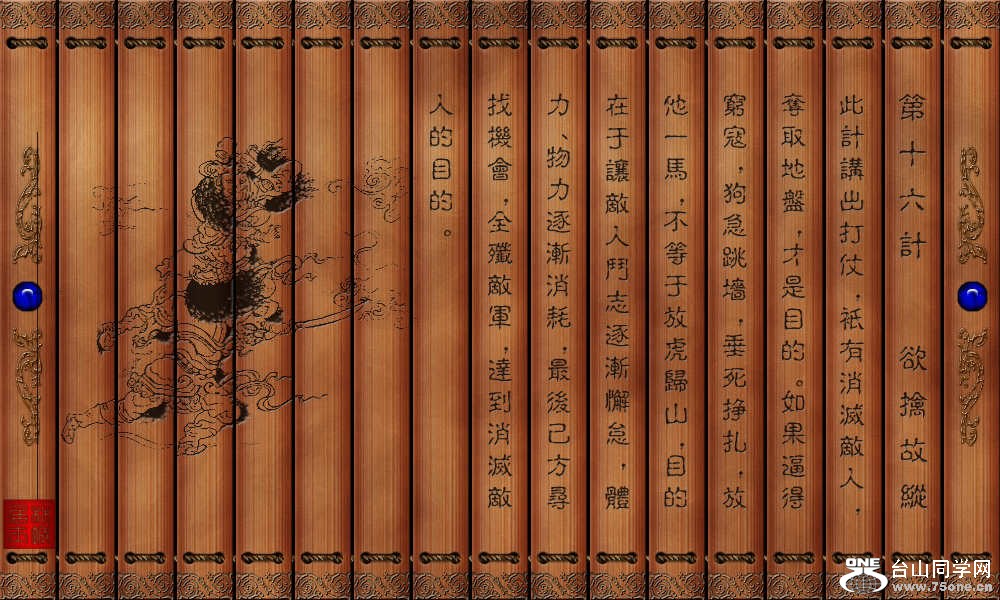 第十六計 欲擒故縱
此計講出打仗，祇有消滅敵人，
奪取地盤，才是目的。如果逼得
窮寇，狗急跳墻，垂死掙扎，放
他一馬，不等于放虎歸山，目的
在于讓敵人鬥志逐漸懈怠，體
力、物力逐漸消耗，最後己方尋
找機會，全殲敵軍，達到消滅敵
人的目的。
ONE
台山同学网
www.75one.cn